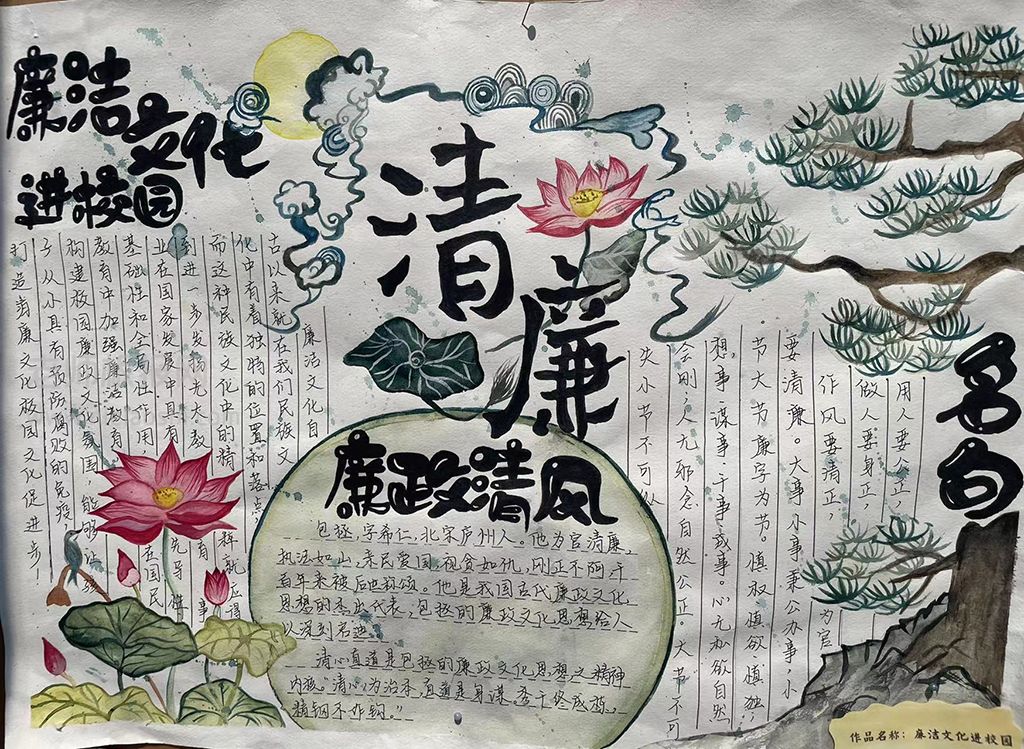 廉洁文化
进校园
清廉
廉洁文化自
古以来就在我们民族文
化中有着独特的位置和落点,
而这种民族文化中的精粹就应得
到进一步发扬光大。教育事
业在国家发展中具有先导性
基础性和全局性作用,在国民
教育中加强廉洁教育
构建校园廉政文化氛围,能够让孩
子从小具有预防腐败的免疫
打造 廉文化校园文化促进步!
廉政清风
包拯,字希仁,北宋庐州人。他为官清廉,
执法如山,亲民爱国,视贪如仇,刚正不阿,千
百年来被后世称颂。他是我国古代廉政文化
思想的杰出代表,包拯的廉政文化思想给人
以深刻启迪。
清心直道是包拯的廉政文化思想之精神
内核。“清心为治本,直道是身谋。秀干终成栋,
精钢不作钩。”
名句
用人要公正,
做人要身正,
作风要清正,为官
要清廉。大事小事秉公办事,小
节大节廉字为节。慎权慎欲慎独,
想事、谋事、干事 事。心无私欲自然
会刚,人无邪念自然公正。大节不可
失小节不可纵
作品名称:廉洁文化进校园